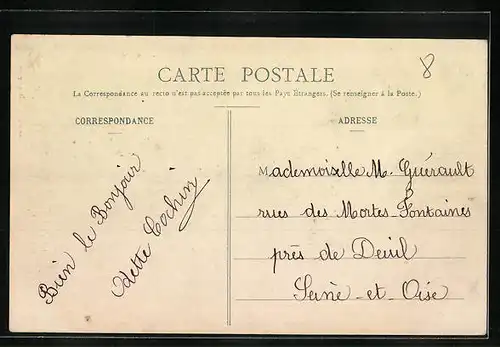 8
CARTE POSTALE
La Correspondance au recto n'est pas acceptée par tous les Pays Etrangers. (Se renseigner à la Poste.)
CORRESPONDANCE
ADRESSE
Bien le Bonjour
Odette Cochin
Mademoiselle M. Guérault
rues des Mortes Fontaines
près de Deuil
Seine-et-Oise